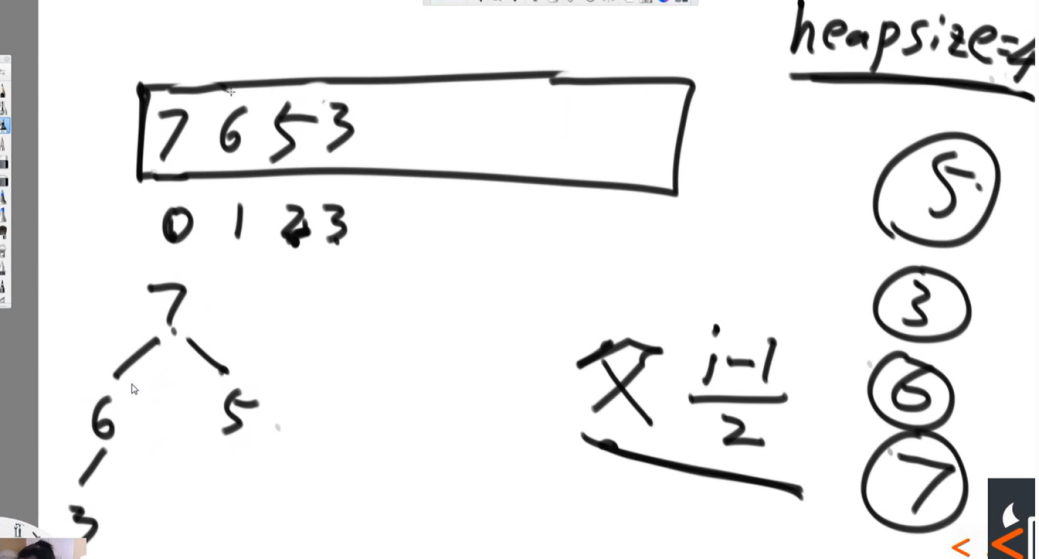 heapsize=4
7 6 5 3
0 1 2 3
7
6 5
3
父 i-1
2
5
3
6
7